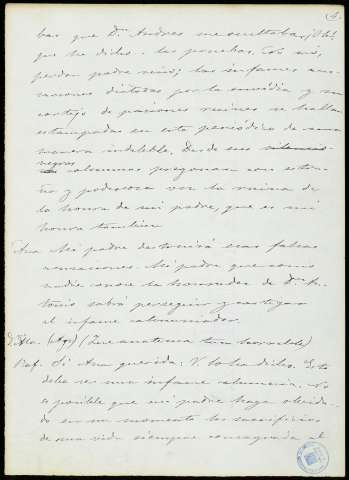 (5.
bas que Dn. Andres me ocultaba, ¡Ah!
que he dicho. las pruebas. Oh no,
perdon padre mio; las infames acu-
saciones dictadas por la envidia y su
cortejo de pasiones ruines se hallan
estampadas en este periódico de una
manera indeleble. Desde sus silenciosas
negras
columnas pregonan con estra-
ño y poderosa voz la ruina de
la honra de mi padre, que es mi
honra tambien
Ana Mi padre destruirá esas falsas
acusaciones. Mi padre que como
nadie conoce la honradez de Dn. An-
tonio sabrá perseguir y castigar
al infame calumniador.
D. Alv. (Ap.) (Que anatema tan horrible)
Raf. Si Ana querida. V. lo ha dicho. Esto
debe ser una infame calumnia. No
es posible que mi padre haya olvida-
do en un momento los sacrificios
de una vida siempre consagrada al